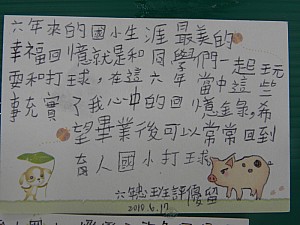 六年來的國小生涯最美的
幸福回憶就是和同學們一起玩
耍和打球,在這六年當中這些
事充實了我心中的回憶金錄,希
望畢業後可以常常回到
育人國小打球
六年 班 優留
2010.6.17